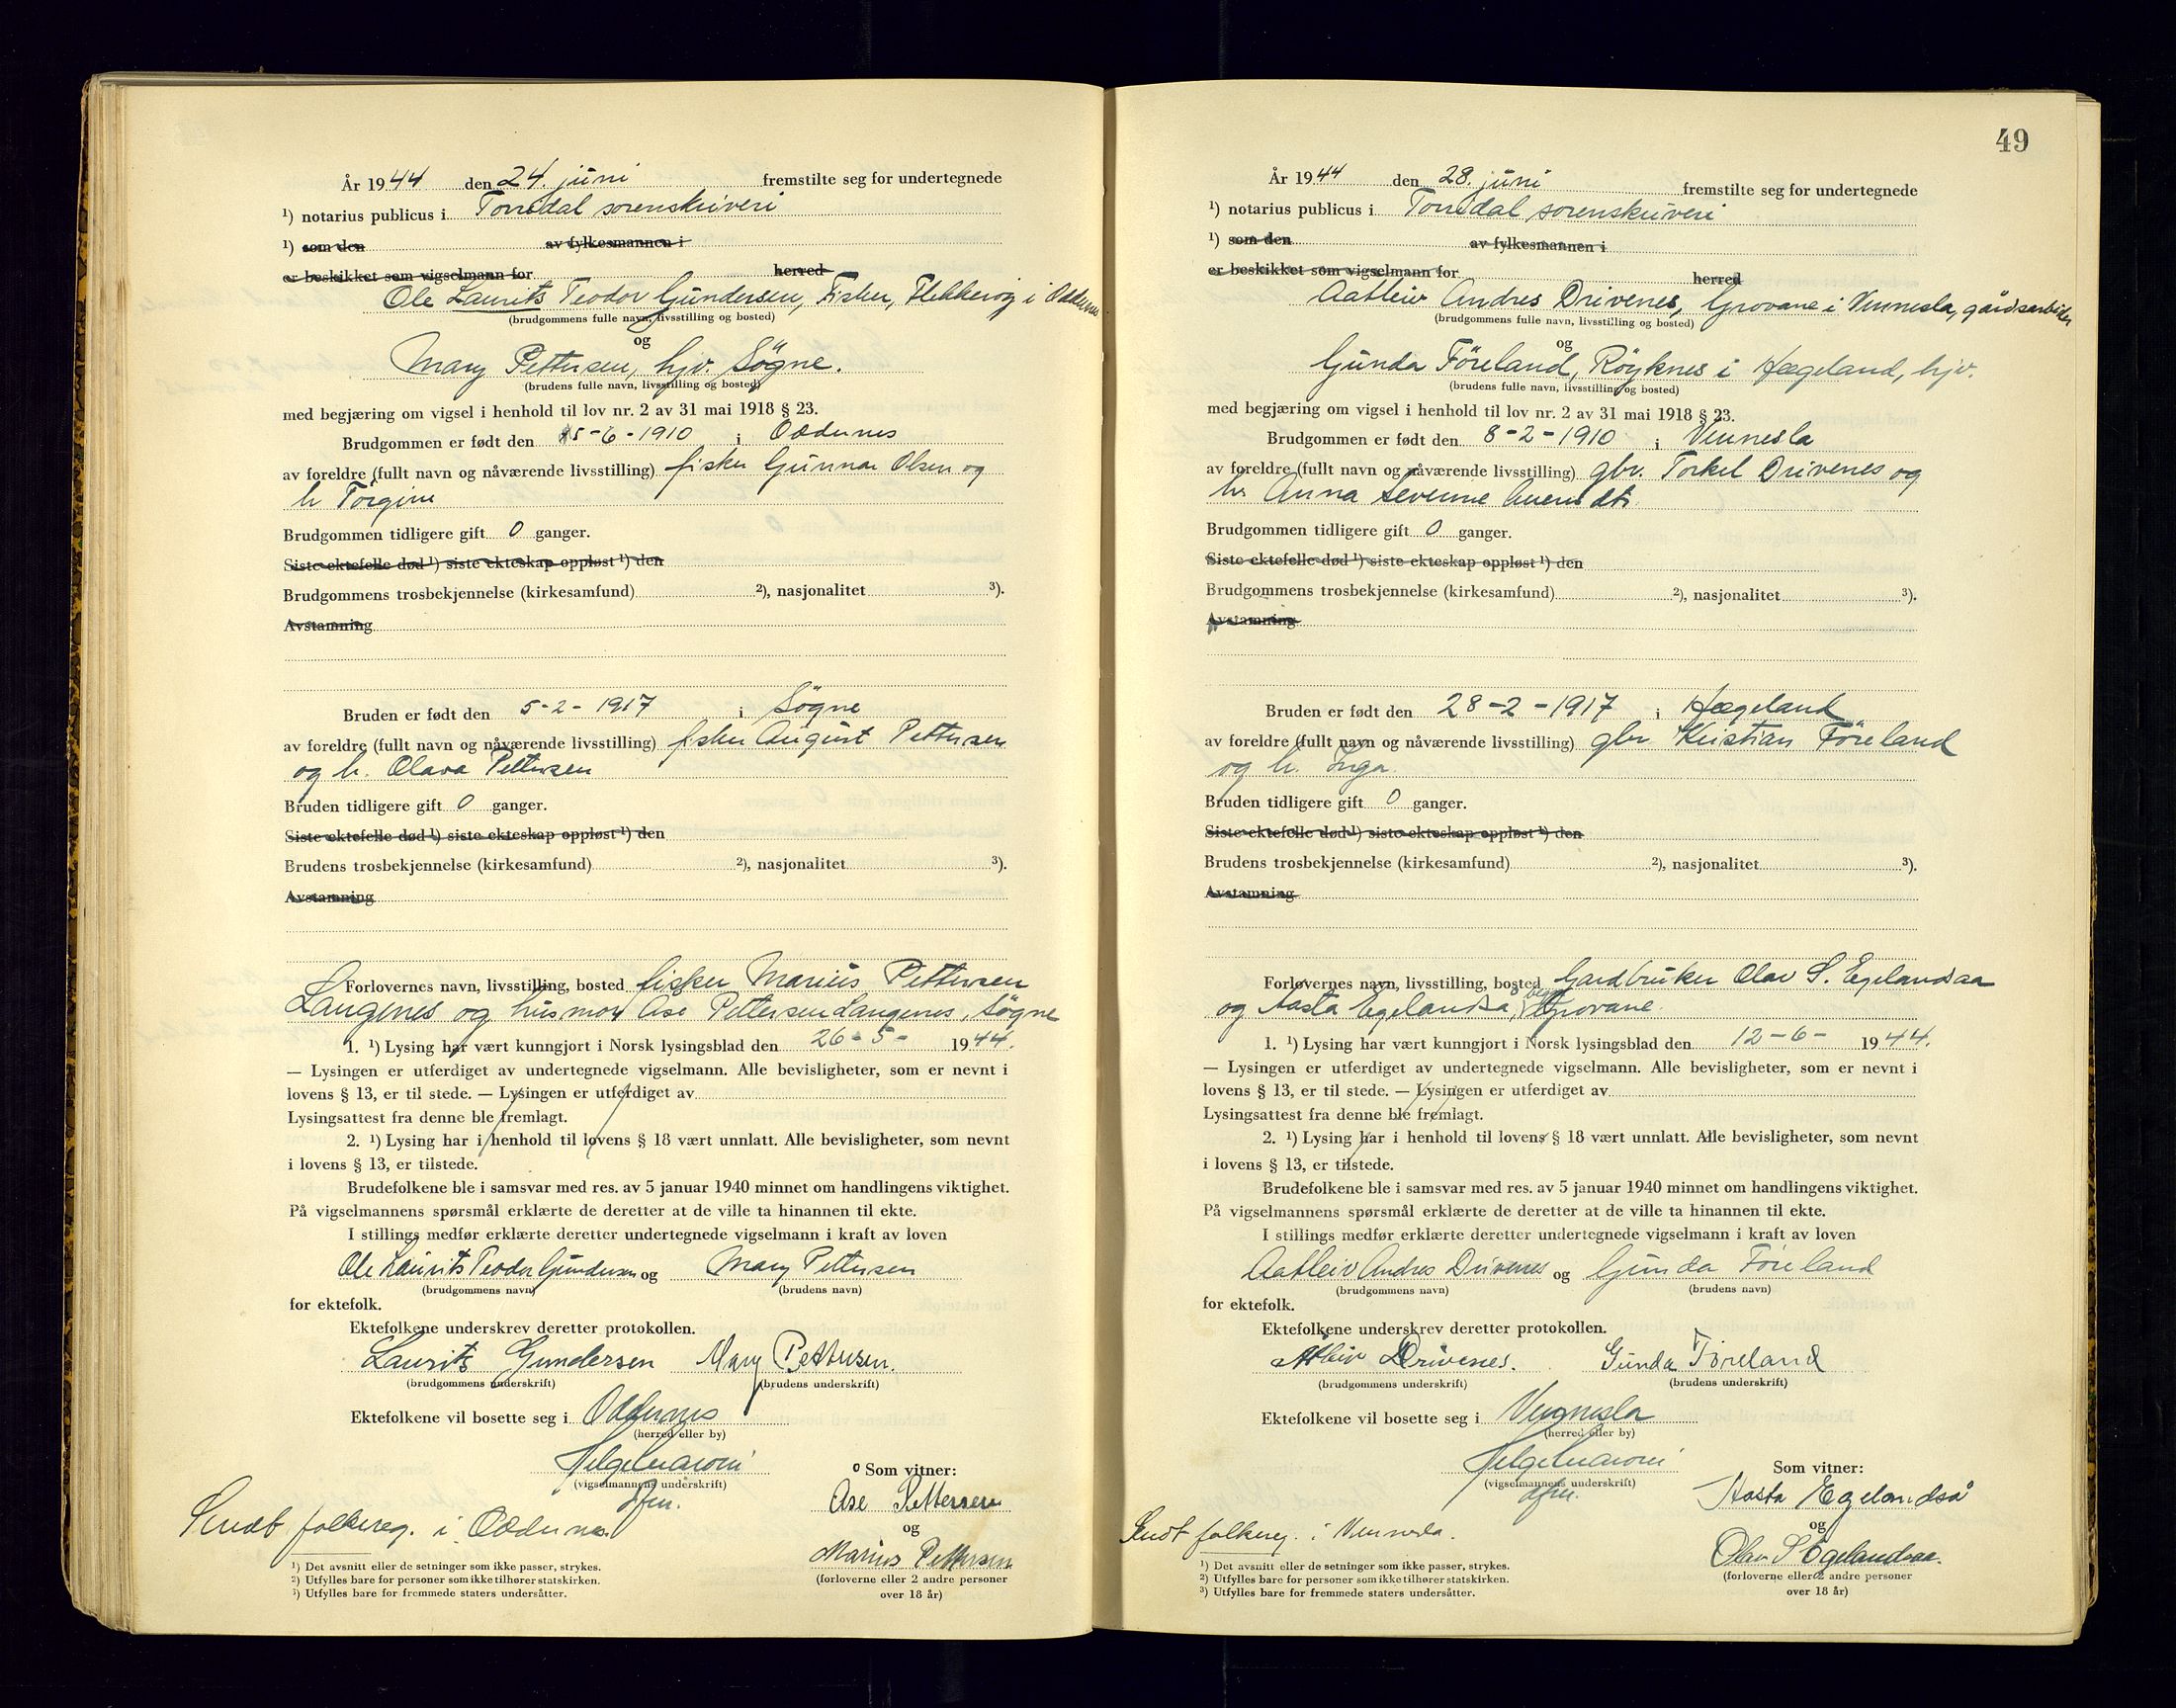 År 1944 den 24. juni fremstilte seg for undertegnede
¹) notarius publicus i Torridal sorenskriveri
¹) som den av fylkesmannen i
er beskikket som vigselmann for herred
Ole Laurits Teodor Gundersen, Fisker, Flekkerøy i Oddernes
(brudgommens fulle navn, livsstilling og bosted)
og
Mary Pettersen, hjv. Søgne.
(brudens fulle navn, livsstilling og bosted)
med begjæring om vigsel i henhold til lov nr. 2 av 31 mai 1918 § 23.
Brudgommen er født den 15-6-1910 i Oddernes
av foreldre (fullt navn og nåværende livsstilling) fisker Gunnar Olsen og
h Torgine
Brudgommen tidligere gift 0 ganger.
Siste ektefelle død ¹) siste ekteskap oppløst ¹) den
Brudgommens trosbekjennelse (kirkesamfund) ²), nasjonalitet ³).
Avstamning
Bruden er født den 5-2-1917 i Søgne
av foreldre (fullt navn og nåværende livsstilling) fisker August Pettersen
og h. Olava Pettersen
Bruden tidligere gift 0 ganger.
Siste ektefelle død ¹) siste ekteskap oppløst ¹) den
Brudens trosbekjennelse (kirkesamfund) ²), nasjonalitet ³).
Avstamning
Forlovernes navn, livsstilling, bosted fisker Marius Pettersen
Langenes og husmor Åse Pettersen Langenes, Søgne
1. ¹) Lysing har vært kunngjort i Norsk lysingsblad den 26-5- 1944.
— Lysingen er utferdiget av undertegnede vigselmann. Alle bevisligheter, som er nevnt i
lovens § 13, er til stede. — Lysingen er utferdiget av
Lysingsattest fra denne ble fremlagt.
2. ¹) Lysing har i henhold til lovens § 18 vært unnlatt. Alle bevisligheter, som nevnt
i lovens § 13, er tilstede.
Brudefolkene ble i samsvar med res. av 5 januar 1940 minnet om handlingens viktighet.
På vigselmannens spørsmål erklærte de deretter at de ville ta hinannen til ekte.
I stillings medfør erklærte deretter undertegnede vigselmann i kraft av loven
Ole Laurits Teodor Gundersen og Mary Pettersen
(brudgommens navn) (brudens navn)
for ektefolk.
Ektefolkene underskrev deretter protokollen.
Laurits Gundersen Mary Pettersen.
(brudgommens underskrift) (brudens underskrift)
Ektefolkene vil bosette seg i Oddernes
(herred eller by)
(vigselmannens underskrift) Som vitner:
dfm. Åse Pettersen
Sendt folkereg. i Oddernes og
Marius Pettersen
(forloverne eller 2 andre personer
over 18 år)
¹) Det avsnitt eller de setninger som ikke passer, strykes.
²) Utfylles bare for personer som ikke tilhører statskirken.
³) Utfylles bare for fremmede staters undersåtter.
49
År 1944 den 28. juni fremstilte seg for undertegnede
¹) notarius publicus i Torridal sorenskriveri
¹) som den av fylkesmannen i
er beskikket som vigselmann for herred
Aatleiv Andres Drivenes, Grovane i Vennesla, gårdsarbeider
(brudgommens fulle navn, livsstilling og bosted)
og
Gunda Föreland, Röyknes i Hægeland, hjv.
(brudens fulle navn, livsstilling og bosted)
med begjæring om vigsel i henhold til lov nr. 2 av 31 mai 1918 § 23.
Brudgommen er født den 8-2-1910 i Vennesla
av foreldre (fullt navn og nåværende livsstilling) gbr. Torkel Drivenes og
h. Anna
Brudgommen tidligere gift 0 ganger.
Siste ektefelle død ¹) siste ekteskap oppløst ¹) den
Brudgommens trosbekjennelse (kirkesamfund) ²), nasjonalitet ³).
Avstamning
Bruden er født den 28-2-1917 i Hægeland
av foreldre (fullt navn og nåværende livsstilling) gbr Kristian Föreland
og h. Inga.
Bruden tidligere gift 0 ganger.
Siste ektefelle død ¹) siste ekteskap oppløst ¹) den
Brudens trosbekjennelse (kirkesamfund) ²), nasjonalitet ³).
Avstamning
Forlovernes navn, livsstilling, bosted Gardbruker Olav S. Egelandsaa
og Aasta Egelandsa, begge Grovane.
1. ¹) Lysing har vært kunngjort i Norsk lysingsblad den 12-6- 1944.
— Lysingen er utferdiget av undertegnede vigselmann. Alle bevisligheter, som er nevnt i
lovens § 13, er til stede. — Lysingen er utferdiget av
Lysingsattest fra denne ble fremlagt.
2. ¹) Lysing har i henhold til lovens § 18 vært unnlatt. Alle bevisligheter, som nevnt
i lovens § 13, er tilstede.
Brudefolkene ble i samsvar med res. av 5 januar 1940 minnet om handlingens viktighet.
På vigselmannens spørsmål erklærte de deretter at de ville ta hinannen til ekte.
I stillings medfør erklærte deretter undertegnede vigselmann i kraft av loven
Aatleiv Andres Drivenes og Gunda Föreland
(brudgommens navn) (brudens navn)
for ektefolk.
Ektefolkene underskrev deretter protokollen.
Atleiv Drivenes. Gunda Föreland
(brudgommens underskrift) (brudens underskrift)
Ektefolkene vil bosette seg i Vennesla
(herred eller by)
(vigselmannens underskrift) Som vitner:
dfm. Aasta Egelandså
Sendt folkereg. i Vennesla. og
Olav S Egelandsaa.
(forloverne eller 2 andre personer
over 18 år)
¹) Det avsnitt eller de setninger som ikke passer, strykes.
²) Utfylles bare for personer som ikke tilhører statskirken.
³) Utfylles bare for fremmede staters undersåtter.